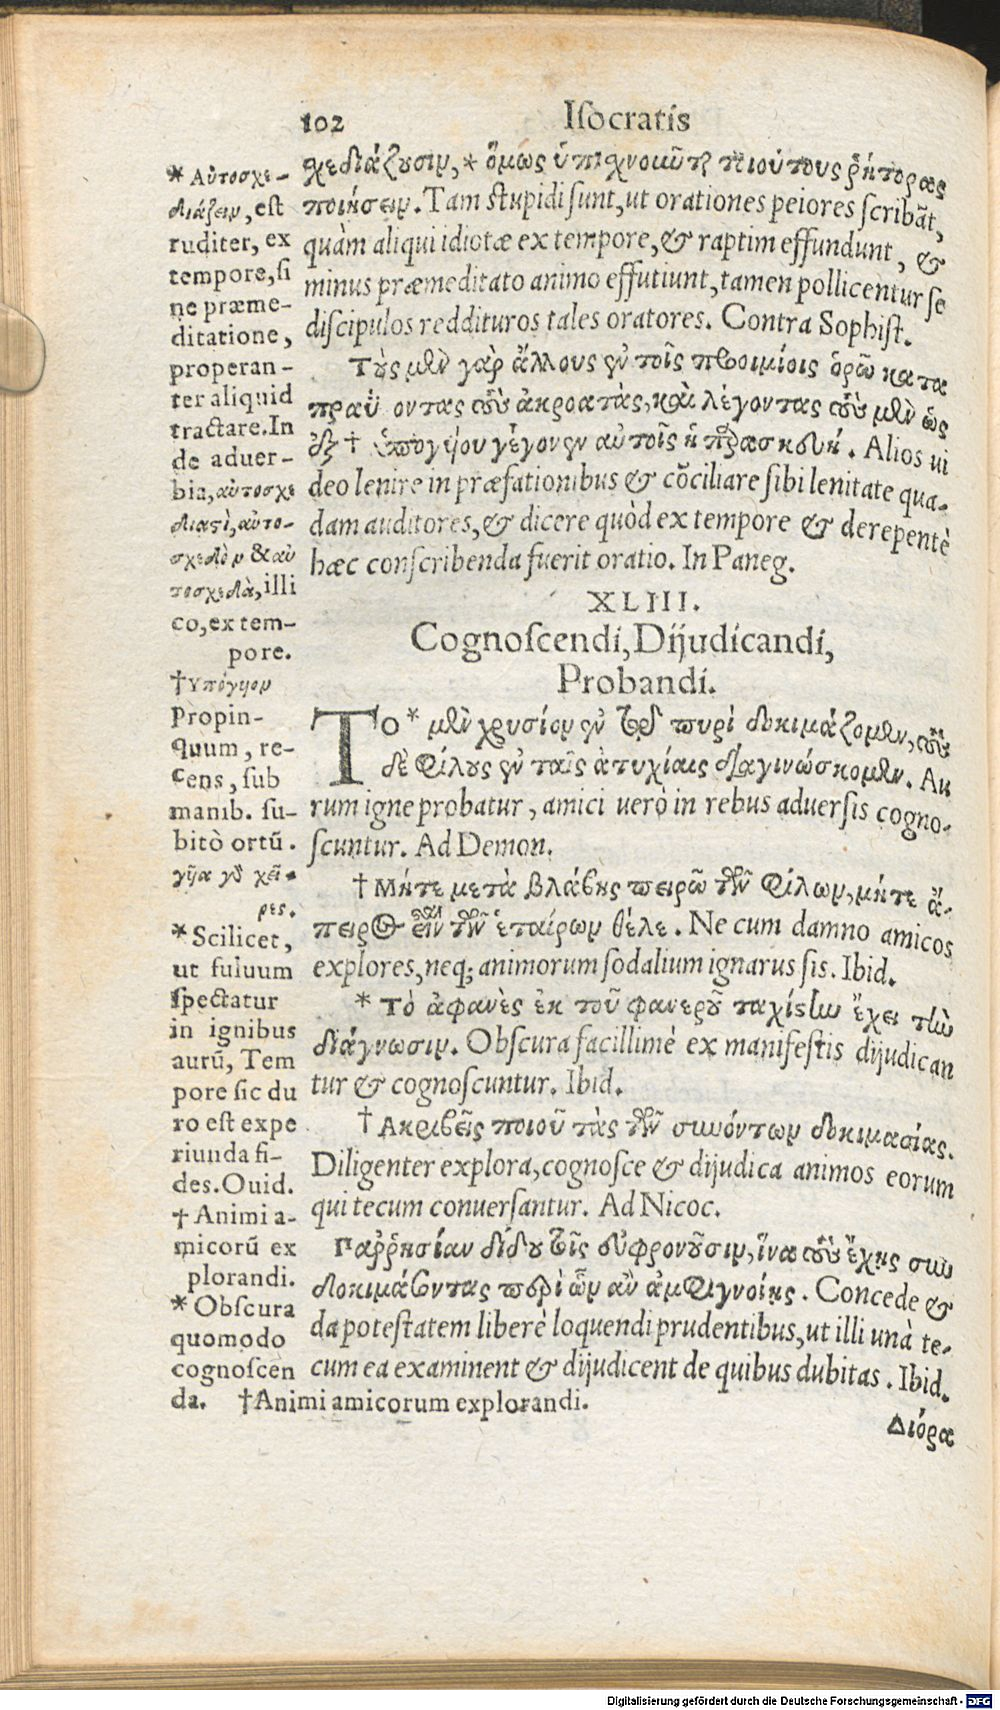 102 Isocratis
χεδιάζουσιν,* ὅμως ὑπιχνοῦνται τοιούτους ῥήτορας
ποιήσειν. Tam stupidi sunt, ut orationes peiores scribāt,
quàm aliqui idiotæ ex tempore, & raptim effundunt, &
minus præmeditato animo effutiunt, tamen pollicentur se
discipulos reddituros tales oratores. Contra Sophist.
Τοὺς μὲν γὰρ ἄλλους ἐν τοῖς προοιμίοις ὁρῶ κατα
πραΰ οντας τοὺς ἀκροατὰς, καὶ λέγοντας τοὺς μὲν ὡς
ἐξ † ὑπογύου γέγονεν αὐτοῖς ἡ παρασκευή. Alios ui
deo lenire in præfationibus & cōciliare sibi lenitate qua-
dam auditores, & dicere quòd ex tempore & derepentè
hæc conscribenda fuerit oratio. In Paneg.
XLIII.
Cognoscendi, Dijudicandi,
Probandi.
Το * μὲν χρυσίον ἐν τῷ πυρὶ δοκιμάζομεν, τοὺς
δὲ φίλους ἐν ταῖς ἀτυχίαις διαγινώσκομεν. Au
rum igne probatur, amici uerò in rebus aduersis cogno-
scuntur. Ad Demon.
† Μήτε μετὰ βλάβης πειρῶ τῶν φίλων, μήτε ἄ-
πειρος εἶναι τῶν ἑταίρων θέλε. Ne cum damno amicos
explores, neq; animorum sodalium ignarus sis. Ibid.
* Τὸ ἀφανὲς ἐκ τοῦ φανεροῦ ταχίστην ἔχει τὴν
διάγνωσιν. Obscura facillimè ex manifestis dijudican
tur & cognoscuntur. Ibid.
† Ακριβεῖς ποιοῦ τὰς τῶν συνόντων δοκιμασίας.
Diligenter explora, cognosce & dijudica animos eorum
qui tecum conuersantur. Ad Nicoc.
Παῤῥησίαν δίδου τοῖς εὐφρονοῦσιν, ἵνα τοὺς ἔχῃς συν
δοκιμάσοντας περὶ ὧν ἂν ἀμφιγνοίης. Concede &
da potestatem liberè loquendi prudentibus, ut illi unà te-
cum ea examinent & dijudicent de quibus dubitas. Ibid.
Διόρα
* Αὐτοσχε-
διάζειν, est
ruditer, ex
tempore, si
ne præme-
ditatione,
properan-
ter aliquid
tractare. In
de aduer-
bia, αὐτοσχε
διαςὶ, αὐτο-
σχεδὸν & αὐ
τοσχεδὰ, illi
co, ex tem-
pore.
† Υπόγυον
Propin-
quum, re-
cens, sub
manib. su-
bitò ortū.
γῆα γὸ χεῖ-
ρες.
* Scilicet,
ut fuluum
spectatur
in ignibus
aurū, Tem
pore sic du
ro est expe
riunda fi-
des. Ouid.
† Animi a-
micorū ex
plorandi.
* Obscura
quomodo
cognoscen
da. † Animi amicorum explorandi.
Digitalisierung gefördert durch die Deutsche Forschungsgemeinschaft - DFG